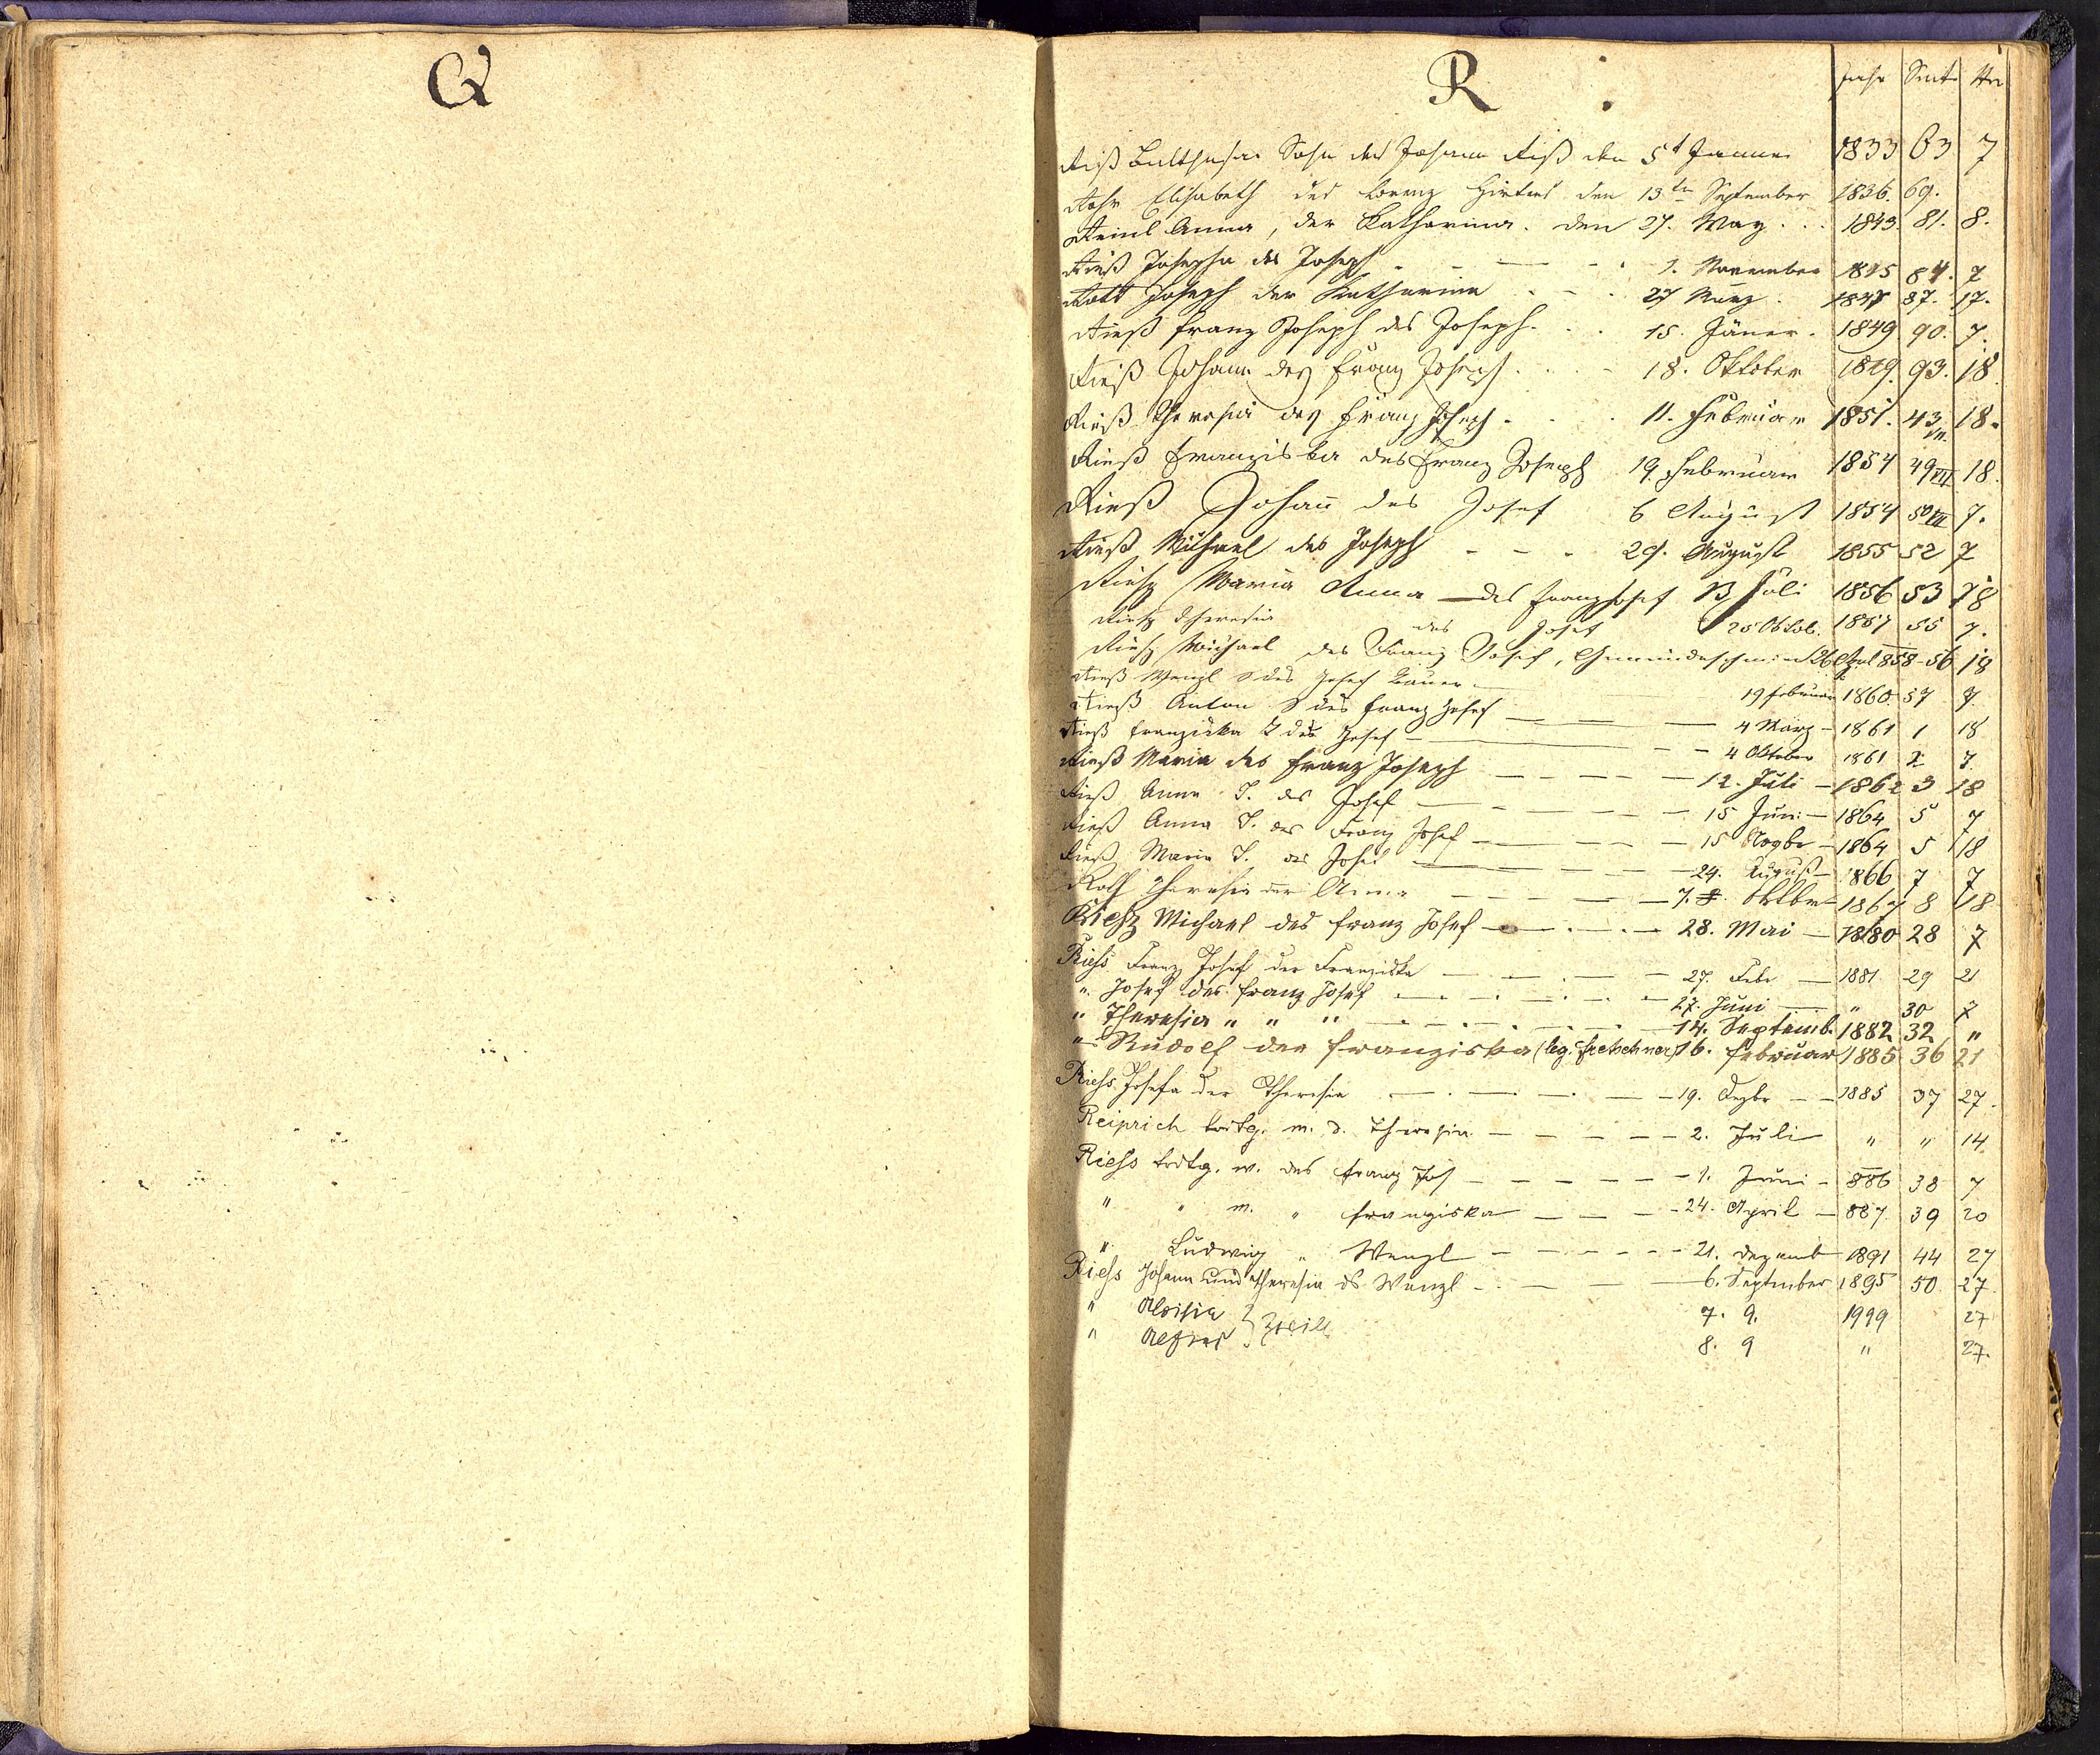 Q
R
Jahr Seite Nro
Riß Balthasar Sohn des Johann Riß den 5t Jänner 1833 63 7
Elisabeth des den 13ten September 1836. 69.
Reinl Anna, der Katharina. den 27. May . . . 1843. 81. 8.
Rieß Josepha des Joseph . - - - . 1. November 1845 84. 7
Rott Joseph der Katharina . - . 27 März . 1847 87. 17.
Rieß Franz Joseph des Joseph . . . 15. Jäner. 1849 90. 7.
Rieß Johann des Franz Joseph . . . - 18. Oktober 1849. 93. 18
Rieß Theresia des Franz Joseph . . . 11. Februar 1851. 43 VII. 18.
Rieß Franziska des Franz Joseph 19. Februar 1854 49 VII 18.
Rieß Johann des Josef 6 August 1854 50 VII 7.
Rieß Michael des Joseph - - - 29. August 1855 52 7
Riesz Maria Anna — des Franz Josef 13 Juli 1856 53 18
Riesz Theresia des Josef 25 Oktob. 1857 55 7.
Riesz Michael des Franz Josef, Gemeindeschmied 26 Apl 858 - 56 18
Rieß Wenzl S des Josef Bauer — 19 Februar 1860 57 7.
Rieß Anton S des Franz Josef — — — 4 März - 1861 1 18
Rieß Franziska T des Josef — — - - 4 Oktober 1861 2 7.
Rieß Maria des Franz Joseph - - - - - 12. Juli - 1862 3 18
Rieß Anna T. des Josef — - - - - 15 Juni - 1864 5 7
Rieß Anna T. des Franz Josef — - - - 15 Novbr - 1864 5 18
Rieß Maria T. des Josef — - - - - 24. August - 1866 7 7
Theresia der Anna - - - - - 7. Oktbr - 1867 8 18
Riesz Michael des Franz Josef — . — . — 28. Mai — 1880 28 7
Riess Franz Josef der Franziska — — . — - 27. Febr — 1881. 29 21
" Josef des Franz Josef — . — . — . - 27. Juni — " 30 7
" Theresia " " " — . — . — . — 14. Septemb. 1882 32 "
" Rudolf der Franziska (leg. Fretschner) 16. Februar 1885 36 21
Riess Josefa der Theresia . — . — . — - 19. Dezbr - - 1885 37 27.
Reiprich todtg. m. d. Theresia - - - - - 2. Juli - " " 14
Riess todtg. w. des Franz Jos - - - - - 1. Juni - 886 38 7
" " m. " Franziska - - - 24. April - 887. 39 20
" Ludwig " Wenzl - - - - - 21. Dezemb 1891 44 27
Riess Johann und Theresia ds Wenzl - - - - 6. September 1895 50. 27.
" Aloisia } Zwill. 7. 9. 1999 27
" Alfred 8. 9 " 27.